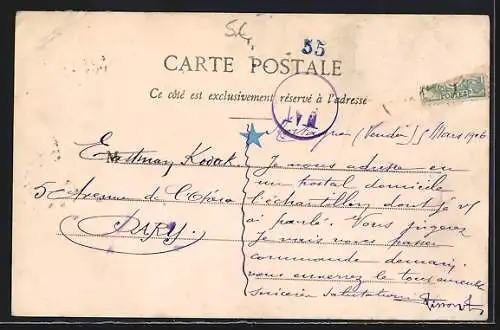 55
CARTE POSTALE
Ce côté est exclusivement réservé à l'adresse
Mortagne (Vendée) 5 Mars 1906
Eastman Kodak.
5 Avenue de l'Opéra
PARIS
Je vous adresse en
un postal domicile
l'échantillon dont je vs
ai parlé. Vous jugerez
Je vais vous passer
commande demain.
vous enverrez le tout ensemble
sincères salutations